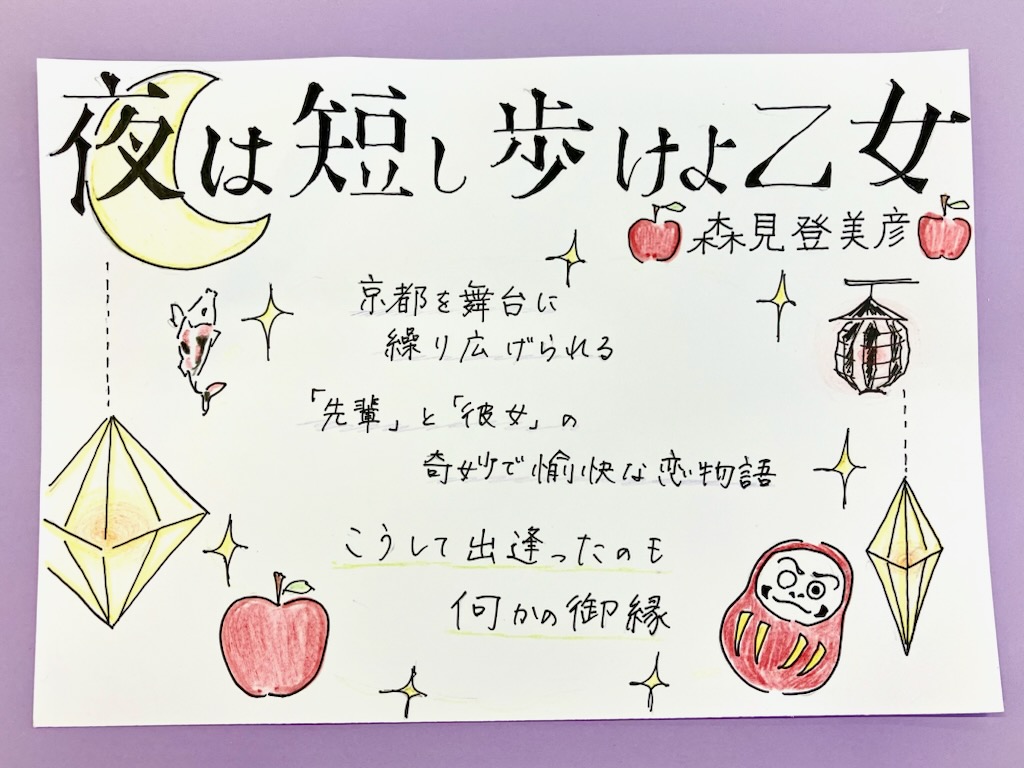 夜は短し歩けよ乙女
森見登美彦
京都を舞台に
繰り広げられる
「先輩」と「彼女」の
奇妙で愉快な恋物語
こうして出逢ったのも
何かの御縁